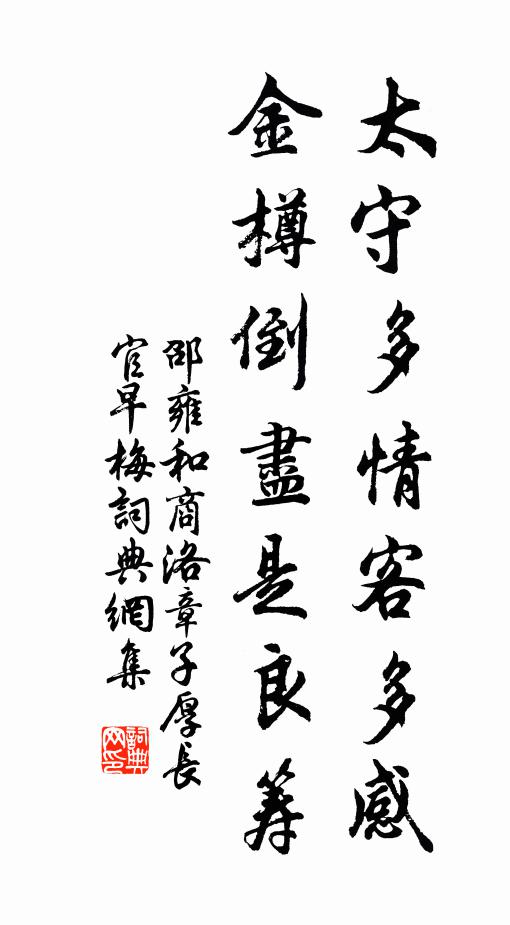 太守多情客多感
金樽倒盡是良筹
邵雍和商洛章子厚長
官早梅詞典網集
詞典网印